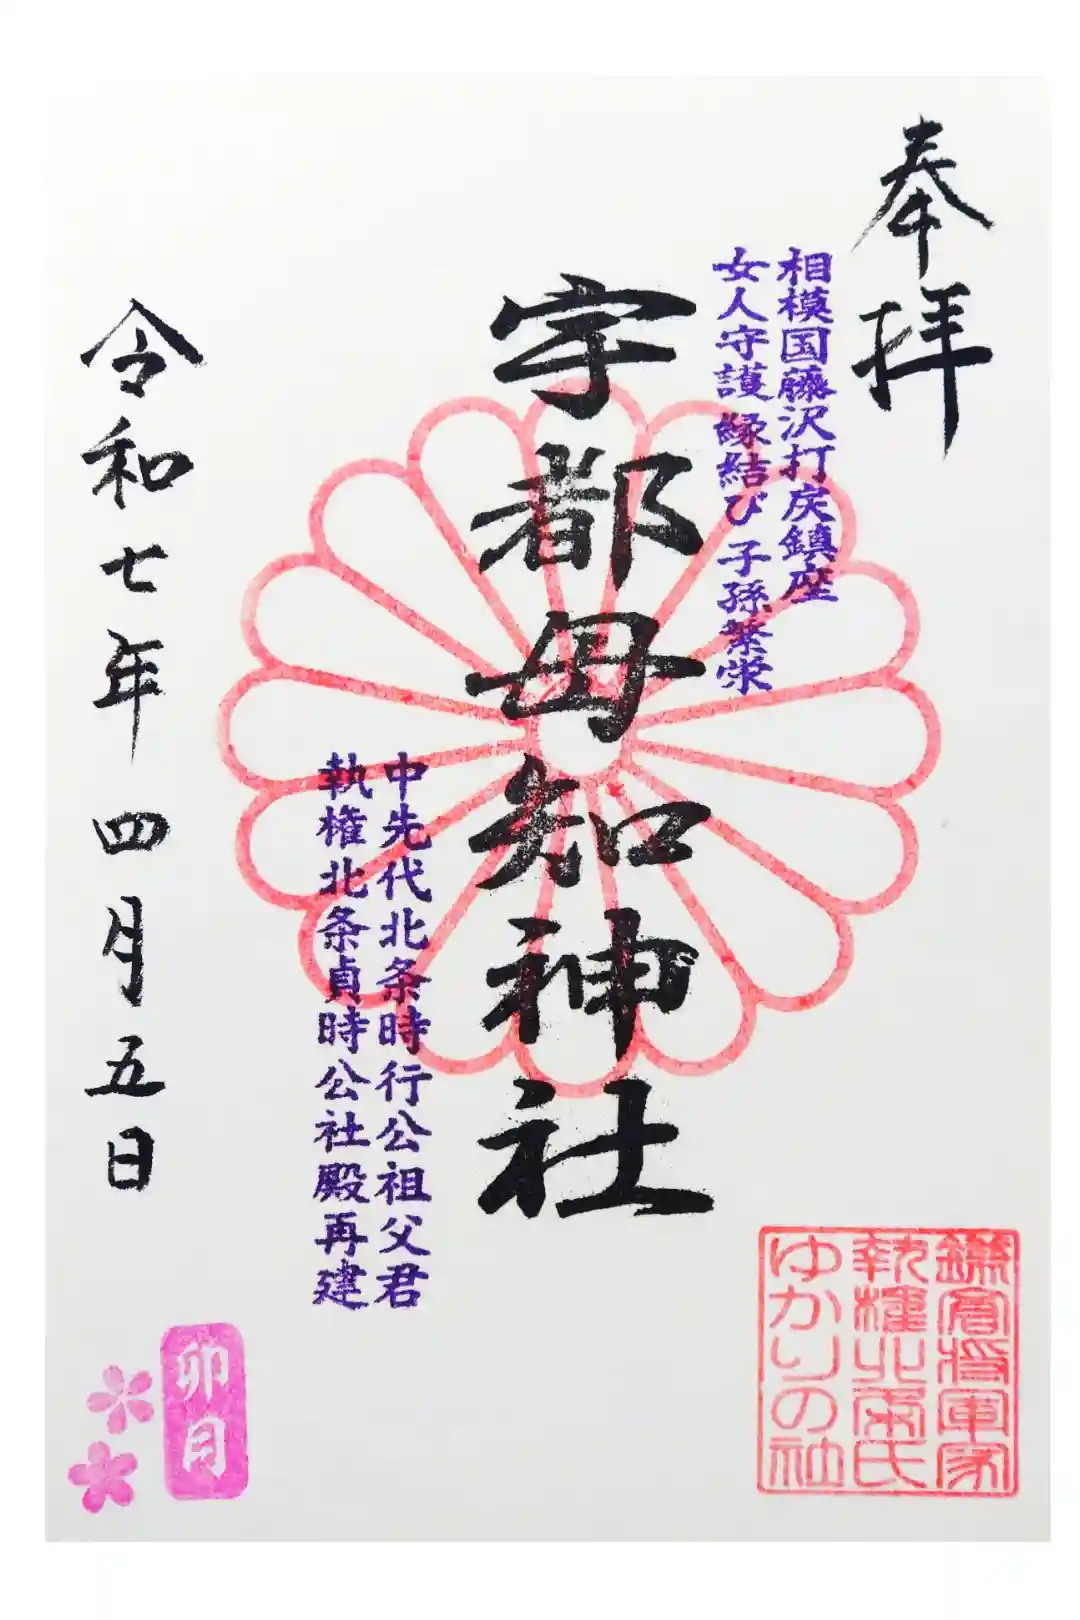 奉拝
相模国藤沢打戻鎮座
女人守護 縁結び 子孫繁栄
宇都母知神社
中先代北条時行公祖父君
執権北条貞時公社殿再建
令和七年 四月五日
卯月
鎌倉将軍家
執権北条氏
ゆかりの社